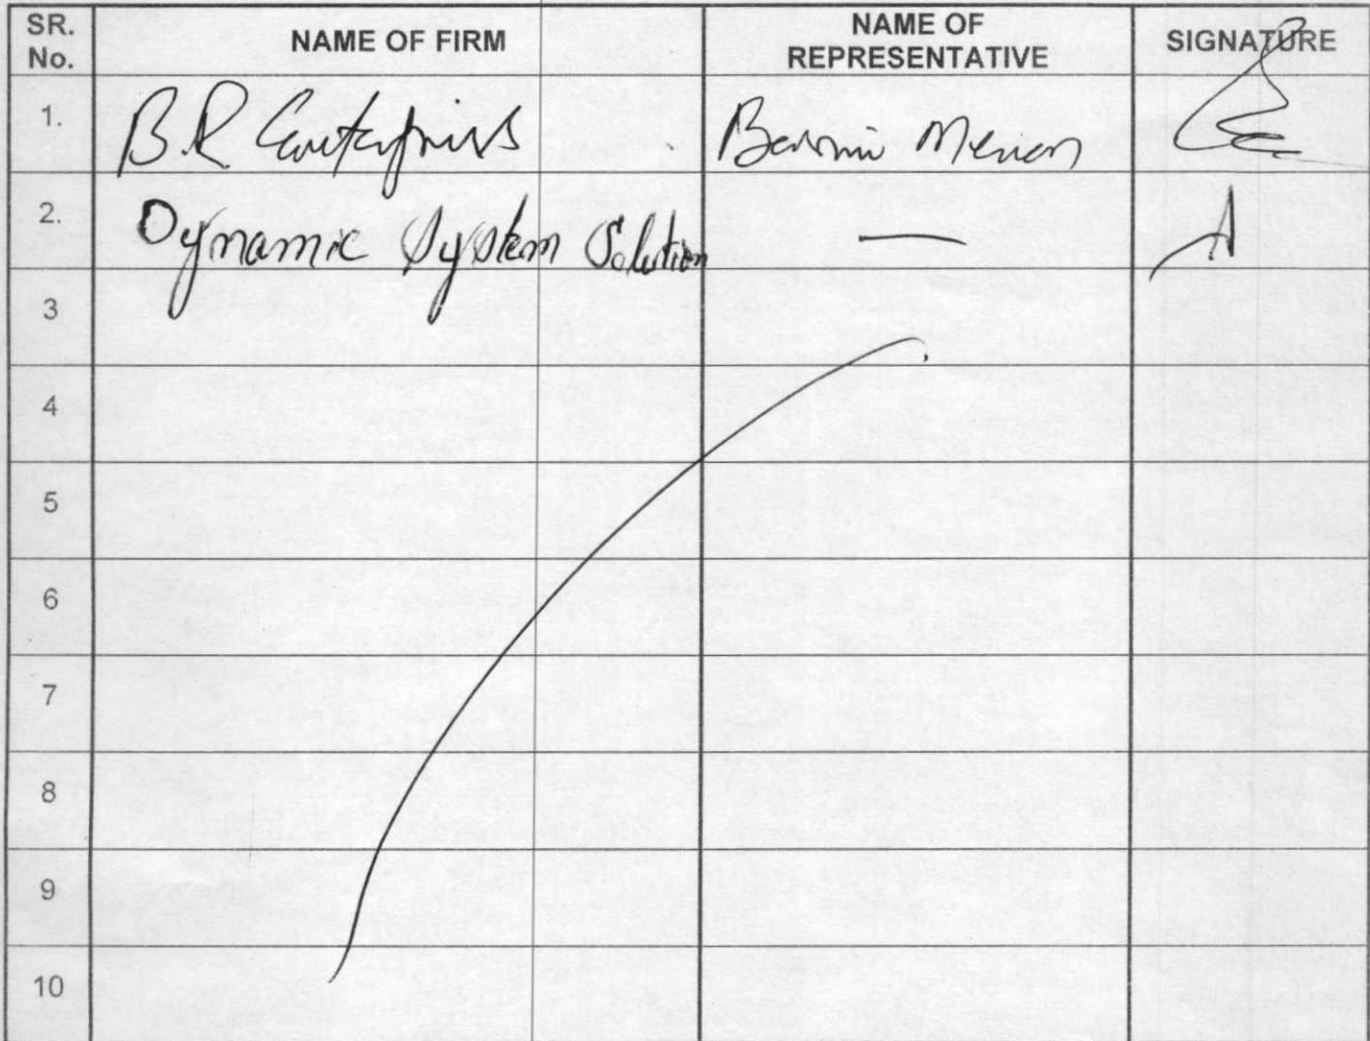 SR. No. NAME OF FIRM NAME OF REPRESENTATIVE SIGNATURE
1. B.R Enterprises Menon
2. Dynamic System Solution —
3
4
5
6
7
8
9
10